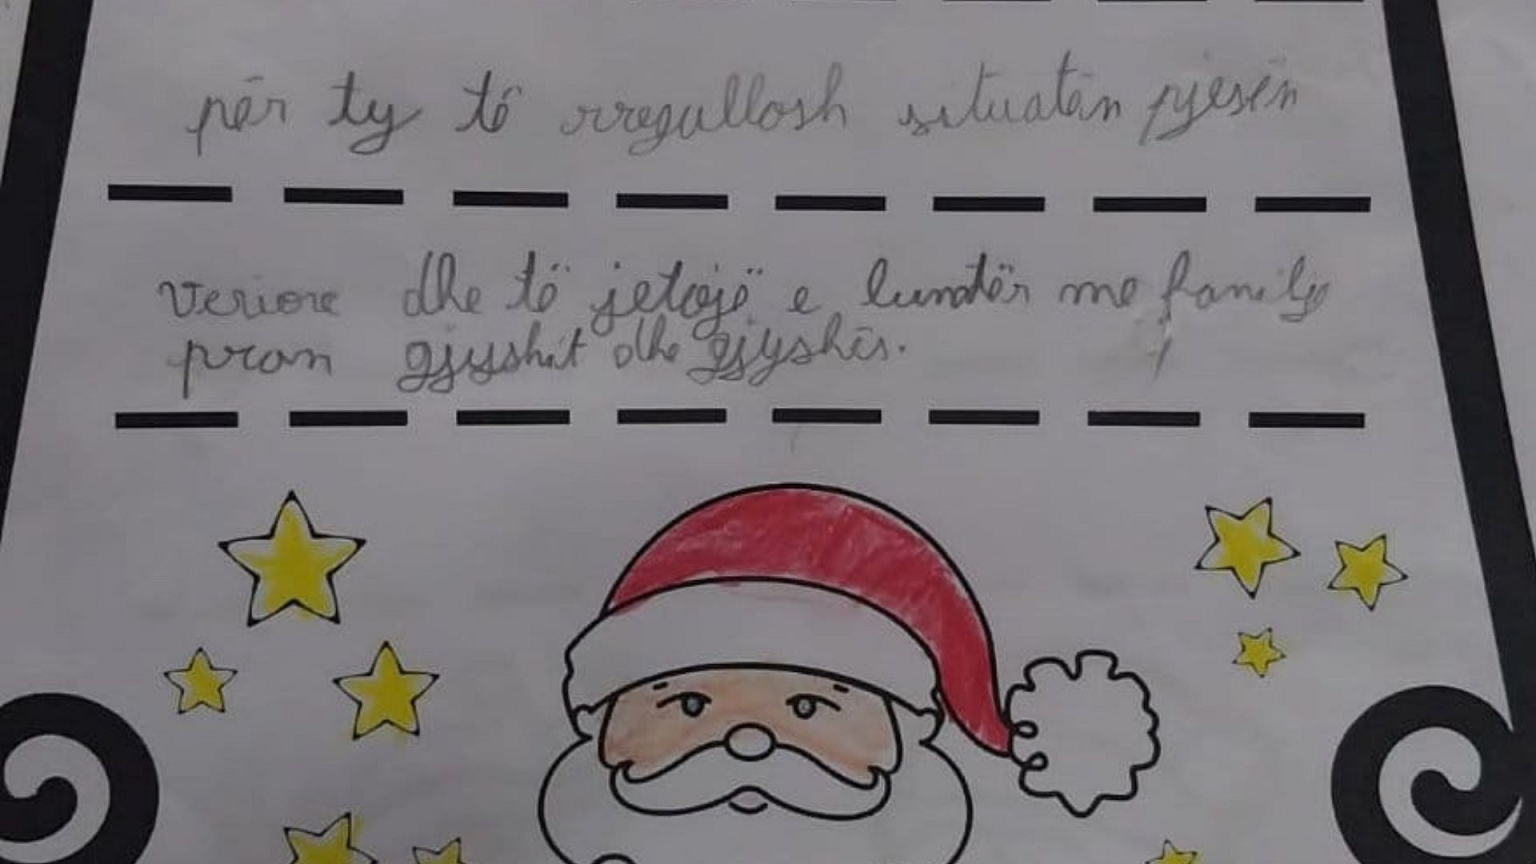 për ty të rregullosh situatën pjesën
veriore dhe të jetojë e lumtër me familje
pran gjyshit dhe gjyshës.